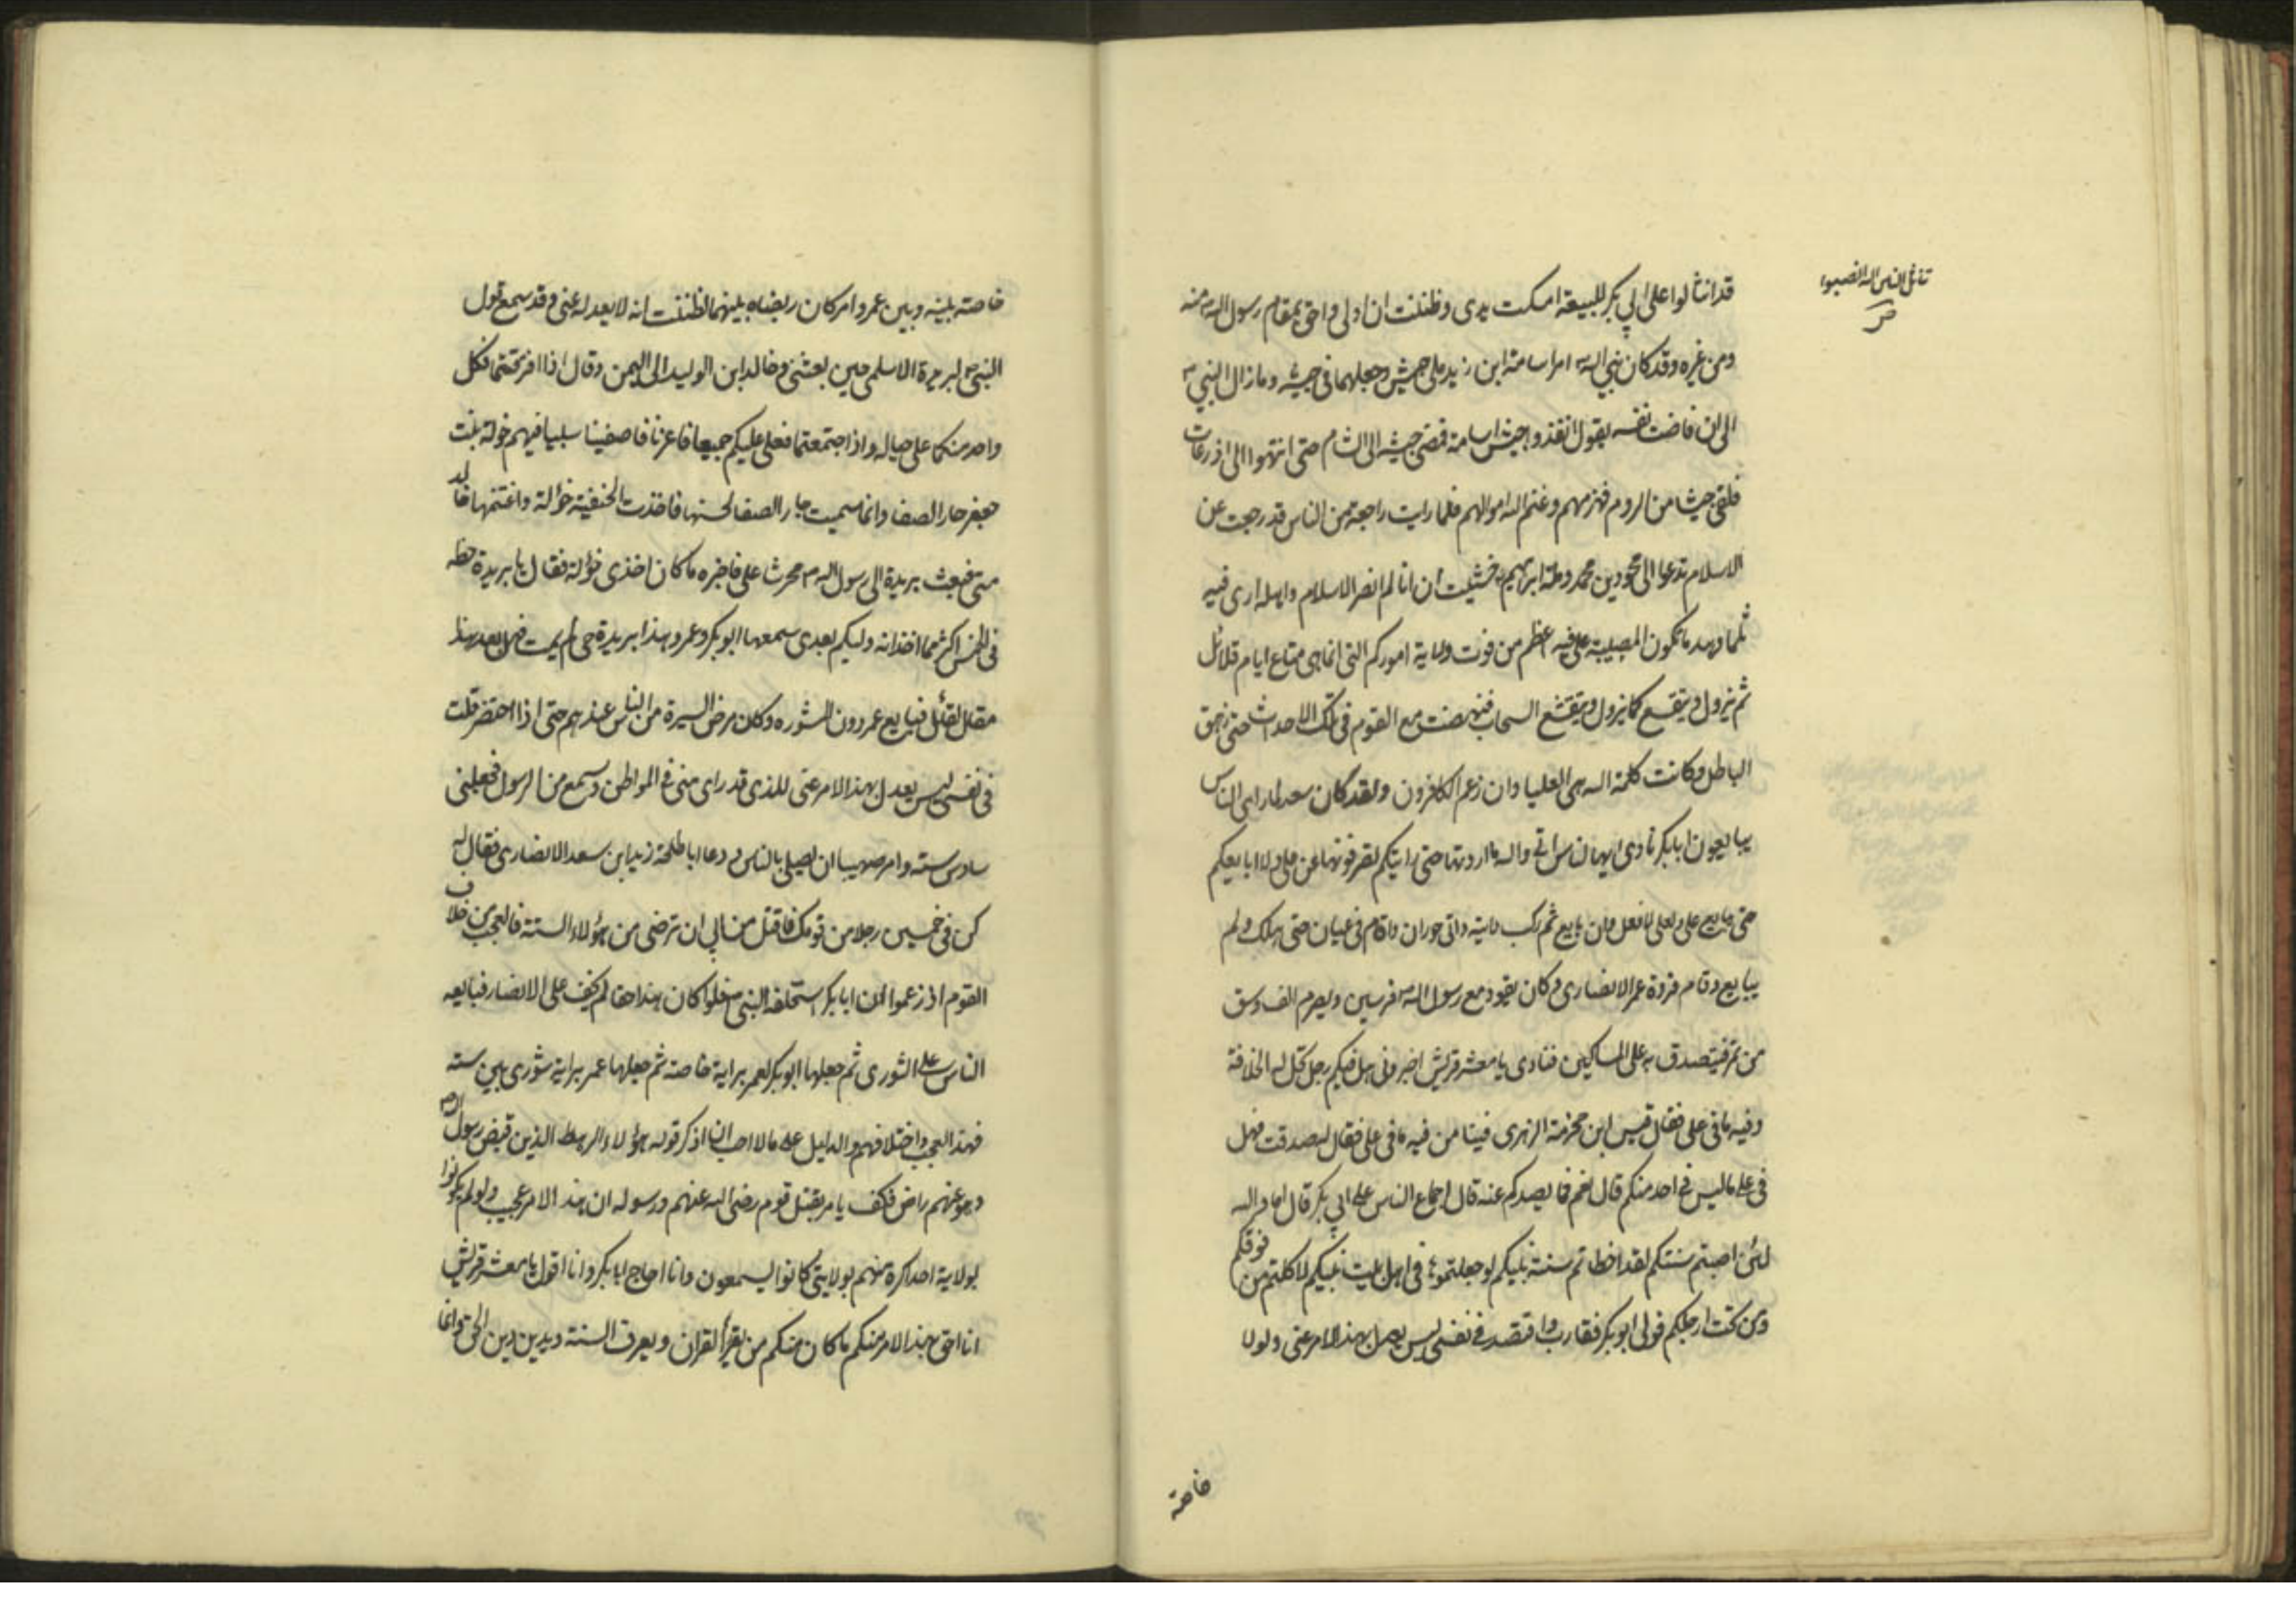 تناثل الناس اله انصبوا
صر
قد انثالوا على ابي بكر للبيعة امسكت يدى وظننت ان اولى واحق بمقام رسول الله منه
ومن غيره وقد كان نبي الله امر اسامة ابن زيد على جيش وجعلهما فى جيشه وما زال النبي
الى ان فاضت نفسه يقول انفذوا جيش اسامة فمضى جيشه الى الشام حتى انتهوا الى اذرعات
فلقى جيشا من الروم فهزمهم وغنم الله اموالهم فلما رايت راجعة من الناس قد رجعت عن
الاسلام تدعوا الى محو دين محمد وملة ابرهيم خشيت ان انا لم انصر الاسلام واهله ارى فيه
ثلما وهدما تكون المصيبة على فيه اعظم من فوت ولاية اموركم التى انما هى متاع ايام قلائل
ثم يزول ويتقسع كما يزول ويتقشع السحاب فنهضت مع القوم فى تلك الاحداث حتى زهق
الباطل وكانت كلمة الله هى العليا وان زعم الكافرون ولقد كان سعد لما راى الناس
يبايعون ابابكر نادى ايها الناس انى والله ما اردتها حتى رايتكم تصرفونها عن على ولا ابايعكم
حتى يبايع على ولعلى لا افعل وان بايع ثم ركب دابته واتى حوران واقام فى عيان حتى هلك ولم
يبايع وقام فروة عمر الانصارى وكان يقود مع رسول الله فرسين ويصرم الف وسق
من تمر فيتصدق به على المساكين فنادى يا معشر قريش اخبرونى هل فيكم رجل تحل له الخلافة
وفيه ما فى على فقال قيس ابن مخرمة الزهرى فينا من فيه ما فى على فقال له صدقت فهل
فى على ما ليس فى احد منكم قال نعم فما يصدكم عنه قال اجماع الناس على ابي بكر قال اما والله
لئن اصبتم سنتكم لقد اخطاتم سنة نبيكم لو جعلتموها فى اهل بيت نبيكم لاكلتم من فوقكم
ومن تحت ارجلكم فولى ابو بكر فقارب واقتصد فى نفسى ليس يعدل بهذا الامر عنى ولولا
خاصة
خاصة بينه وبين عمر وامر كان ربضاه بينهما لظننت انه لا يعدله عنى وقد سمع قول
النبي لبريدة الاسلمى حين بعثنى وخالد ابن الوليد الى اليمن وقال اذا افترقتما فكل
واحد منكما على حياله واذا اجتمعتما فعلى عليكم جميعا فاغرنا فاصبنا سبيا فيهم خولة بنت
جعفر جار الصفا وانما سميت جار الصفا لحسنها فاخذت الحنفية خولة واغتنمها خالد
منى فبعث بريدة الى رسول الله محرشا على فاخبره ما كان اخذى خولة فقال يا بريدة حظه
فى الخمس اكثر مما اخذ انه وليكم بعدى سمعها ابو بكر وعمر وهذا بريدة حى لم يمت فهل بعد هذا
مقال لقائل فبايع عمر دون المشوره وكان مرضى السيرة من الناس عندهم حتى اذا احتضر قلت
فى نفسى ليس يعدل بهذا الامر عنى للذى قد راى منى فى المواطن وسمع من الرسول فجعلنى
سادس ستة وامر صهيبا ان يصلى بالناس و دعا ابا طلحة زيد ابن سعد الانصارى فقال له
كن فى خمسين رجلا من قومك فاقتل من ابي ان ترضى من هؤلاء الستة فالعجب من خلاف
القوم اذ زعموا ان ابابكر استخلفه النبي فلو كان هذا حقا لم يخف على الانصار فبايعه
الناس على الشورى ثم جعلها ابو بكر لعمر برايه خاصة ثم جعلها عمر برايه شورى بين ستة
فهذا العجب واختلافهم والدليل على ما لا احب ان اذكر قوله هؤلاء الرهط الذين قبض رسول الله
وهو عنهم راض فكيف يامر بقتل قوم رضى الله عنهم ورسوله ان هذا الامر عجيب ولو لم يكونوا
لولاية احد اكره منهم لولايتى كانوا يسمعون وانا احاج ابابكر وانا اقول يا معشر قريش
انا احق بهذا الامر منكم ما كان منكم من يقرأ القران ويعرف السنة ويدين دين الحق وانما